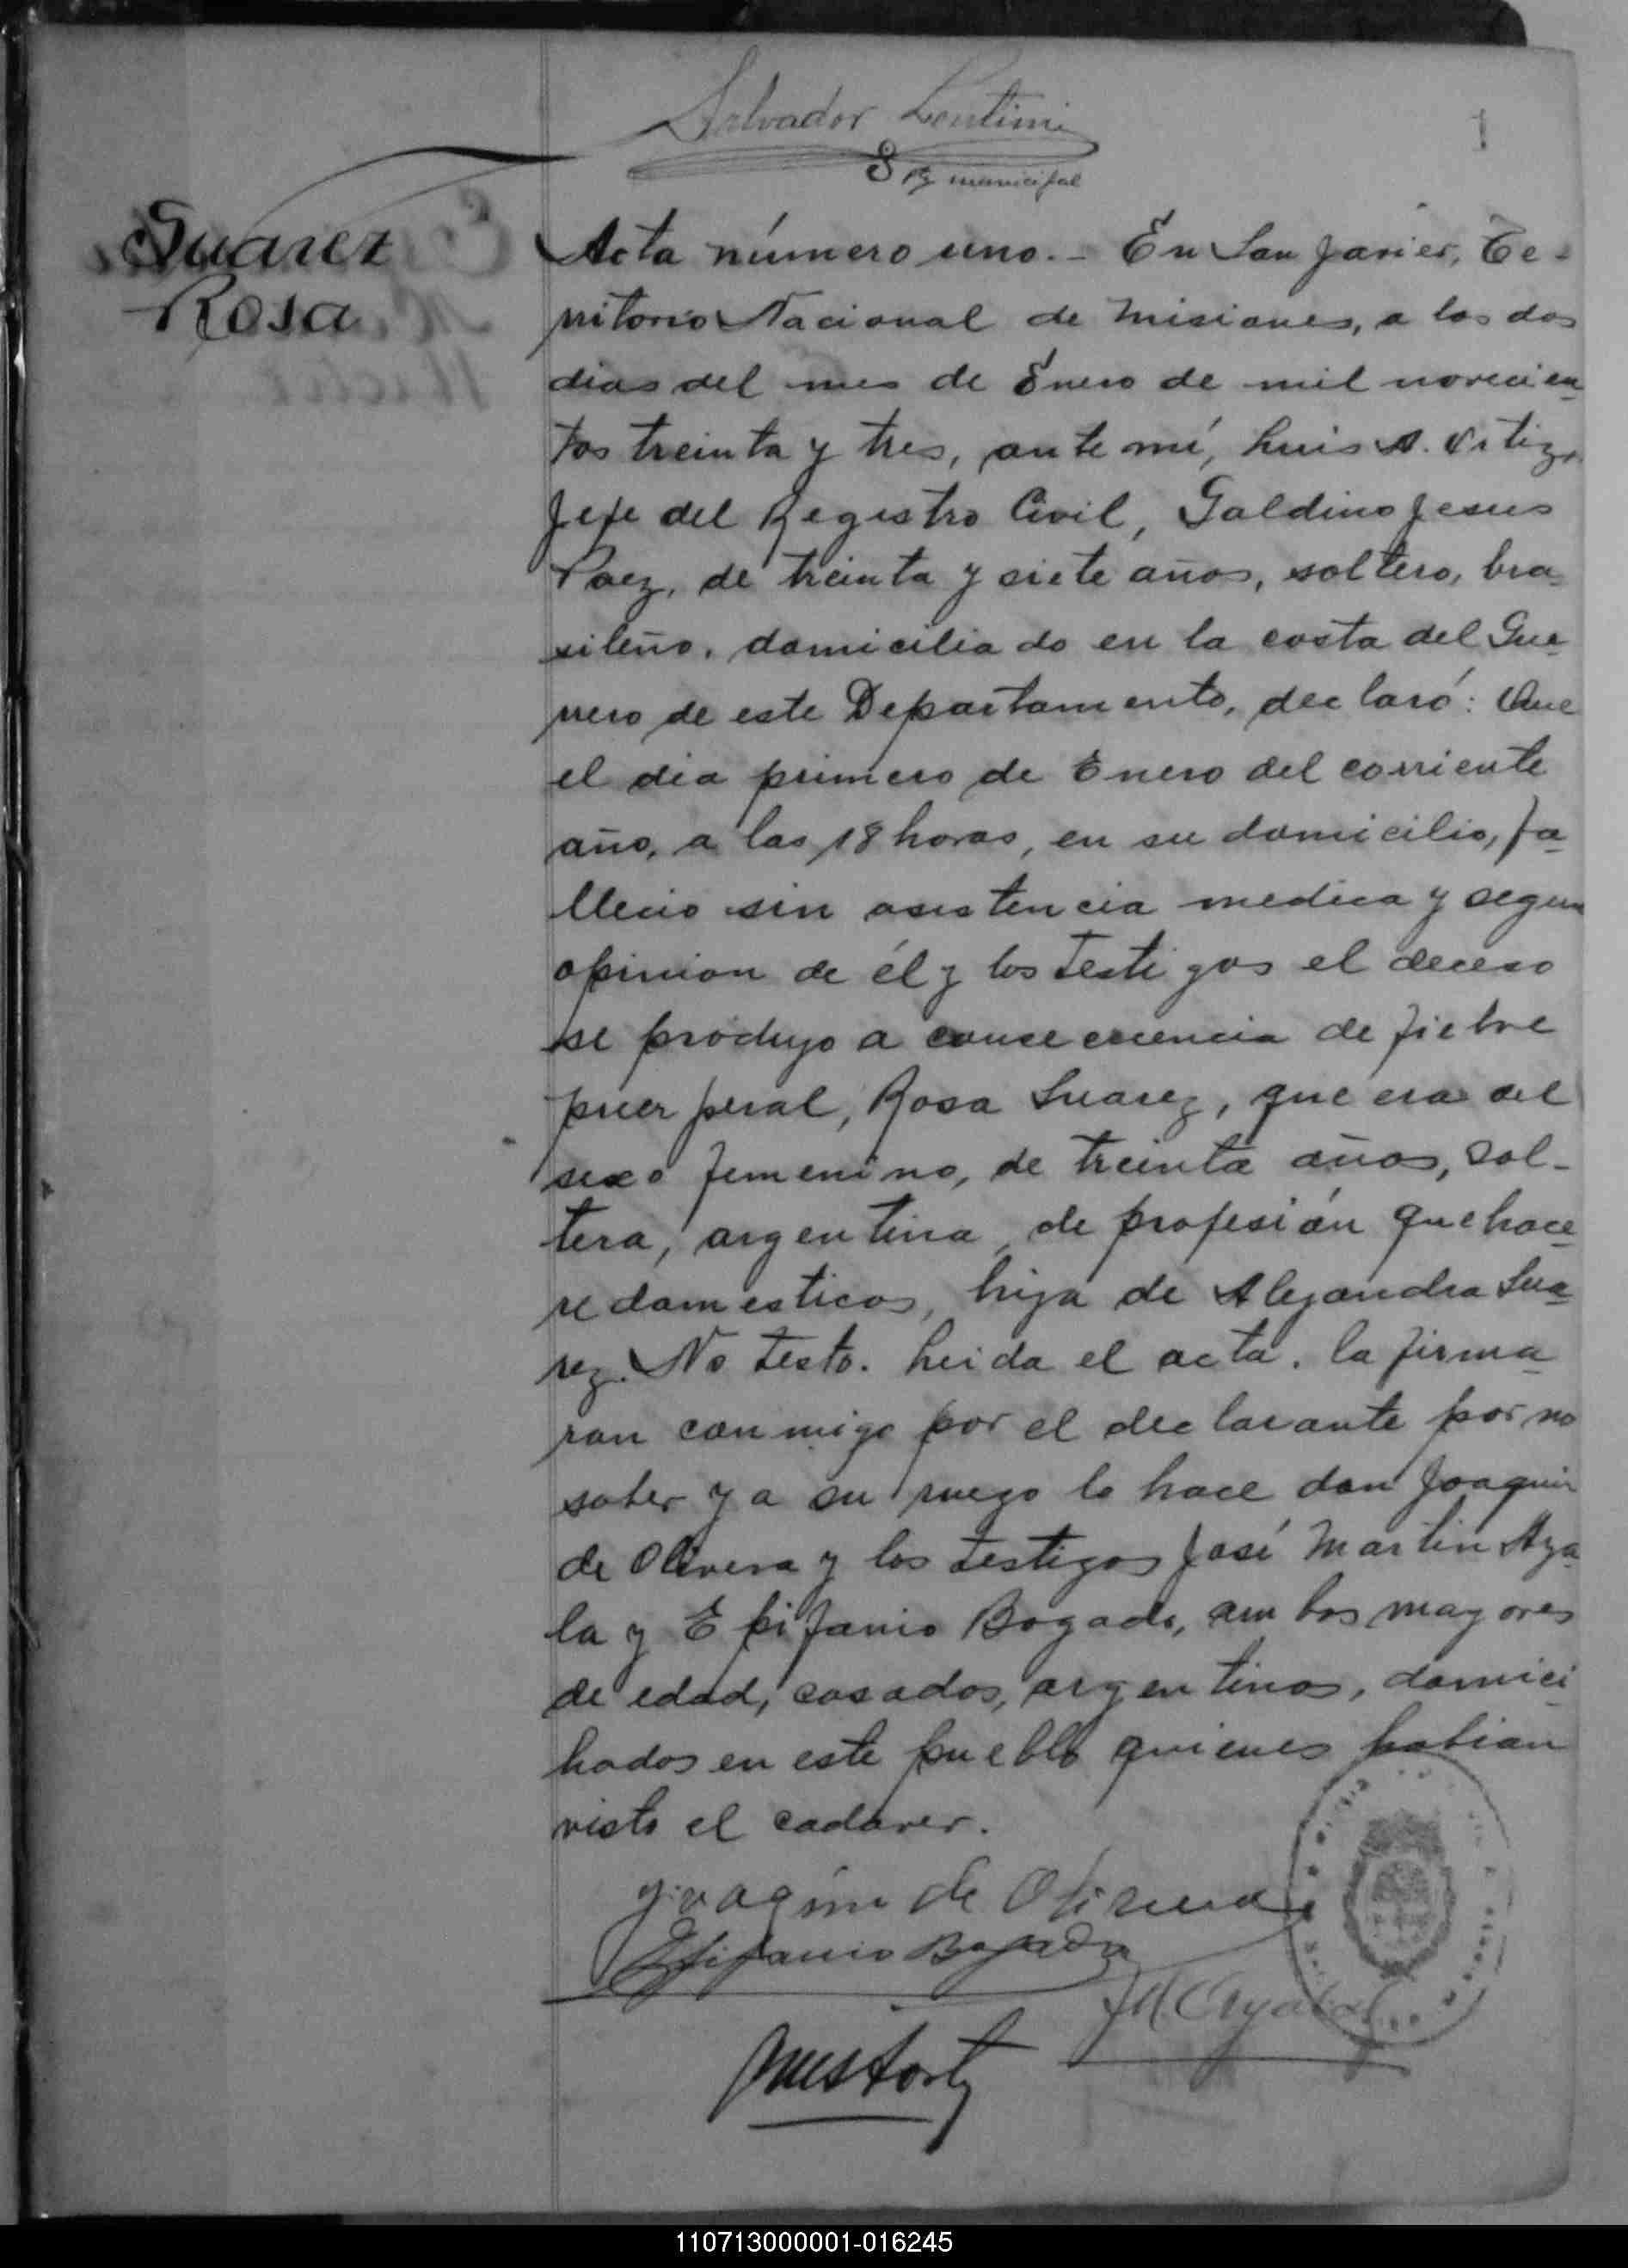 Salvador Lentini
S Rº municipal
1
Suarez
Rosa
Acta número uno.- En San Javier, Te-
rritorio Nacional de Misiones, a los dos
dias del mes de Enero de mil novecien-
tos treinta y tres, ante mí, Luis A. Ortiz,
Jefe del Registro Civil, Galdino Jesus
Paez, de treinta y siete años, soltero, bra-
sileño, domiciliado en la costa del Gue-
rrero de este Departamento, declaró: Que
el dia primero de Enero del corriente
año, a las 18 horas, en su domicilio, fa-
llecio sin asistencia medica y segun
opinion de él y los testigos el deceso
se produjo a consecuencia de fiebre
puerperal, Rosa Suarez, que era del
sexo femenino, de treinta años, sol-
tera, argentina, de profesión quehace-
re domesticos, hija de Alejandra Sua-
rez. No testo. Leida el acta, la firma-
ron conmigo por el declarante por no
saber y a su ruego lo hace don Joaquin
de Olivera y los testigos José Martin Aya-
la y Epifanio Bogado, ambos mayores
de edad, casados, argentinos, domici-
liados en este pueblo quienes habian
visto el cadaver.
Joaquin de Olivera
Epifanio Bogado
JM Ayala
Luis A Ortiz
110713000001-016245